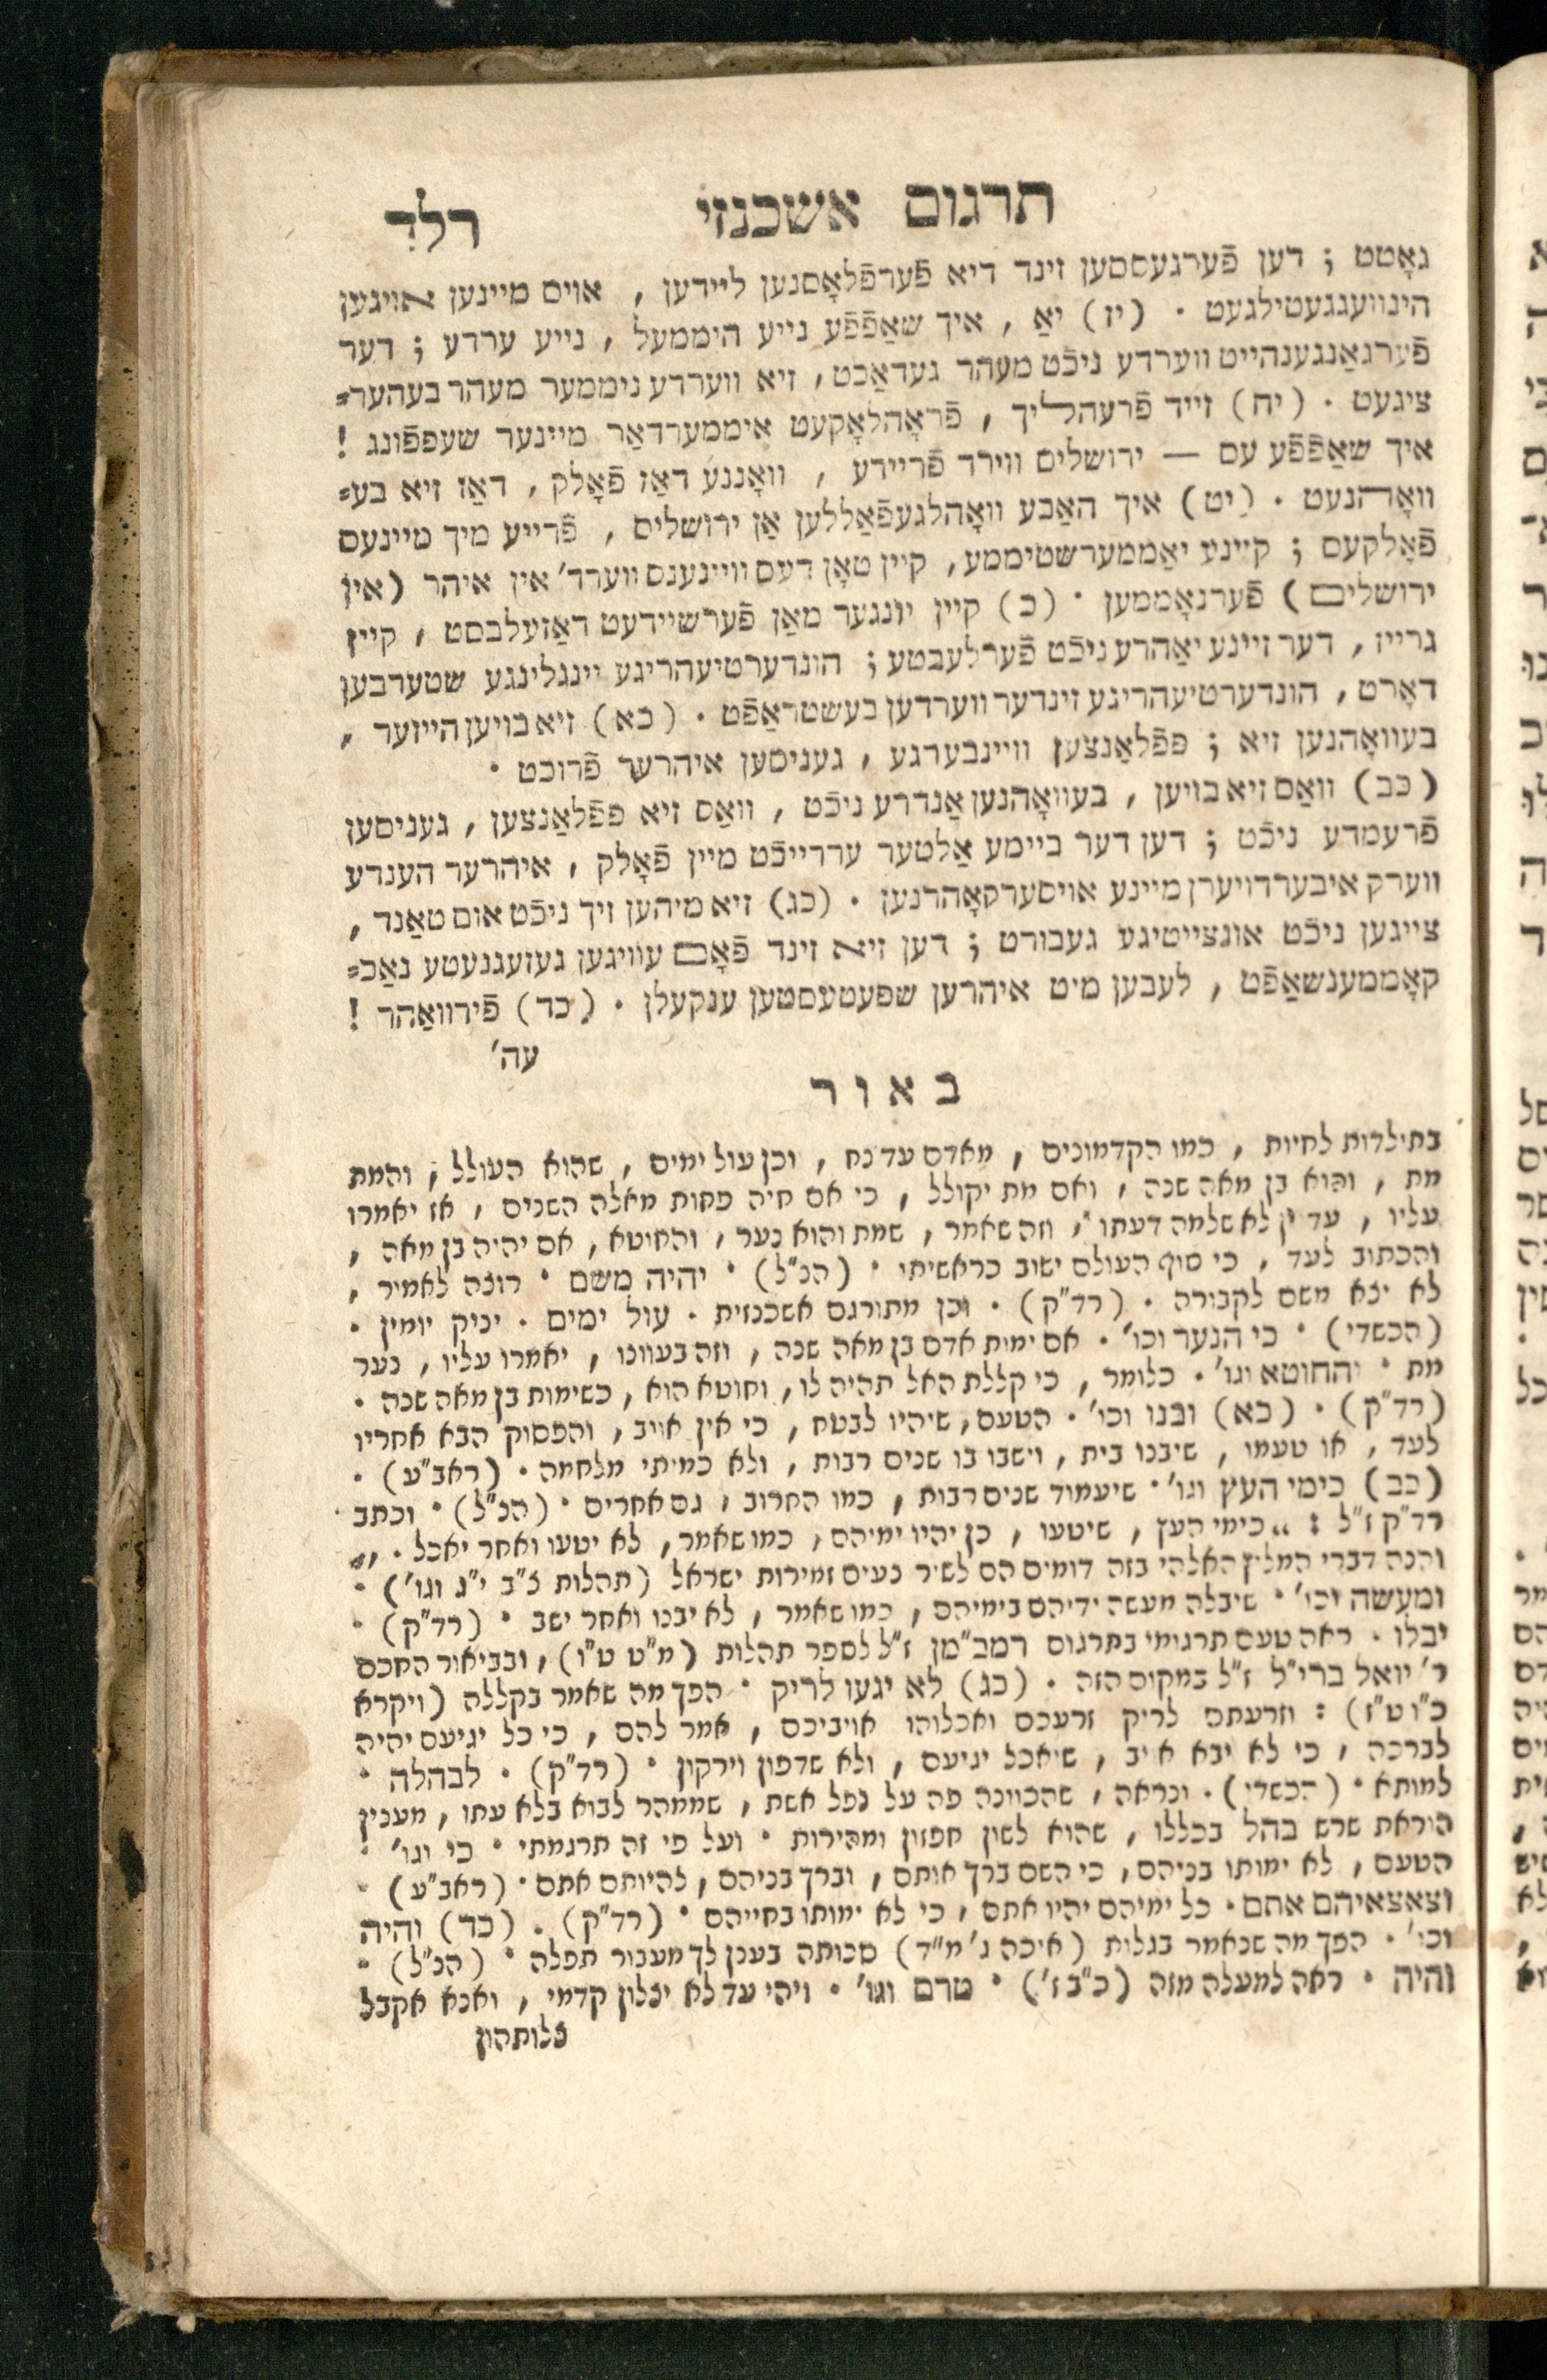 תרגום אשכנזי רלד
גאָטט ; דען פֿערגעססען זינד דיא פֿערפֿלאָסנען ליידען , אויס מיינען אויגען
הינוועגגעטילגעט . (יז) יאַ , איך שאַפֿפֿע נייע היממעל , נייע ערדע ; דער
פֿערגאַנגענהייט ווערדע ניכֿט מעהר געדאַכט , זיא ווערדע ניממער מעהר בעהער=
ציגעט . (יח) זייד פֿרעהליך , פֿראָהלאָקעט איממערדאַר מיינער שעפפֿונג !
איך שאַפֿפֿע עס — ירושלים ווירד פֿריידע , וואָננע דאַז פֿאָלק , דאַז זיא בע=
וואָהנעט . (יט) איך האַבע וואָהלגעפֿאַללען אַן ירושלים , פֿרייע מיך מיינעס
פֿאָלקעס ; קיינע יאַממערשטיממע , קיין טאָן דעס וויינענס ווערד' אין איהר (אין
ירושלים) פֿערנאָממען . (כ) קיין יונגער מאַן פֿערשיידעט דאַזעלבסט , קיין
גרייז , דער זיינע יאַהרע ניכֿט פֿערלעבטע ; הונדערטיעהריגע יינגלינגע שטערבען
דאָרט , הונדערטיעהריגע זינדער ווערדען בעשטראַפֿט . (כא) זיא בויען הייזער ,
בעוואָהנען זיא ; פפֿלאַנצען וויינבערגע , געניסען איהרער פֿרוכט .
(כב) וואַס זיא בויען , בעוואָהנען אַנדרע ניכֿט , וואַס זיא פפֿלאַנצען , געניסען
פֿרעמדע ניכֿט ; דען דער ביימע אַלטער עררייכֿט מיין פֿאָלק , איהרער הענדע
ווערק איבערדויערן מיינע אויסערקאָהרנען . (כג) זיא מיהען זיך ניכֿט אום טאַנד ,
צייגען ניכֿט אונצייטיגע געבורט ; דען זיא זינד פֿאָם עוויגען געזעגנעטע נאַכ=
קאָממענשאַפֿט , לעבען מיט איהרען שפעטעסטען ענקעלן . (כד) פֿירוואַהר !
עה'
באור
בתילדות לחיות , כמו הקדמונים , מאדם עד נח , וכן עול ימים , שהוא העולל , והמת
מת , והוא בן מאה שנה , ואם מת יקולל , כי אם חיה פחות מאלה השנים , אז יאמרו
עליו , עדין לא שלמה דעתו , וזה שאמר , שמת והוא נער , והחוטא , אם יהיה בן מאה ,
והכתוב לעד , כי סוף העולם ישוב כראשיתו . (הנ"ל) . יהיה משם . רוצה לאמיר ,
לא יצא משם לקבורה . (רד"ק) . וכן מתורגם אשכנזית . עול ימים . יניק יומין .
(הכשדי) . כי הנער וכו' . אם ימות אדם בן מאה שנה , וזה בעוונו , יאמרו עליו , נער
מת . והחוטא וגו' . כלומר , כי קללת האל תהיה לו , וחוטא הוא , כשימות בן מאה שנה .
(רד"ק) . (כא) ובנו וכו' . הטעם , שיהיו לבטח , כי אין אויב , והפסוק הבא אחריו
לעד , או טעמו , שיבנו בית , וישבו בו שנים רבות , ולא כמיתי מלחמה . (ראב"ע) .
(כב) כימי העץ וגו' . שיעמוד שנים רבות , כמו החרוב , גם אחרים . (הנ"ל) . וכתב
רד"ק ז"ל : „כימי העץ , שיטעו , כן יהיו ימיהם , כמו שאמר , לא יטעו ואחר יאכל . „
והנה דברי המליץ האלהי בזה דומים הם לשיר נעים זמירות ישראל (תהלות צ"ב י"ג וגו') .
ומעשה וכו' . שיבלה מעשה ידיהם בימיהם , כמו שאמר , לא יבנו ואחר ישב . (רד"ק) .
יבלו . ראה טעם תרגומי בתרגום רמב"מן ז"ל לספר תהלות (מ"ט ט"ו) , ובביאור החכם
ר' יואל ברי"ל ז"ל במקום הזה . (כג) לא יגעו לריק . הפך מה שאמר בקללה (ויקרא
כ"ו ט"ז) : וזרעתם לריק זרעכם ואכלוהו אויביכם , אמר להם , כי כל יגיעם יהיה
לברכה , כי לא יבא איב , שיאכל יגיעם , ולא שדפון וירקון . (רד"ק) . לבהלה .
למותא . (הכשדי) . ונראה , שהכוונה פה על נפל אשת , שממהר לבוא בלא עתו , מענין
הוראת שרש בהל בכללו , שהוא לשון חפזון ומהירות . ועל פי זה תרגמתי . כי וגו' .
הטעם , לא ימותו בניהם , כי השם ברך אותם , וברך בניהם , להיותם אתם . (ראב"ע) .
וצאצאיהם אתם . כל ימיהם יהיו אתם , כי לא ימותו בחייהם . (רד"ק) . (כד) והיה
וכו' . הפך מה שנאמר בגלות (איכה ג' מ"ד) סכותה בענן לך מעבור תפלה . (הנ"ל) .
והיה . ראה למעלה מזה (כ"ב ז') . טרם וגו' . ויהי עד לא יצלון קדמי , ואנא אקבל
צלותהון